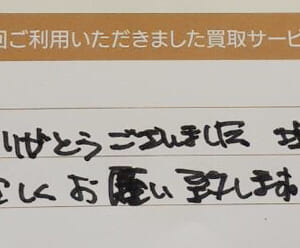 回ご利用いただきました買取サービ
りがとうございました
しくお願い致します